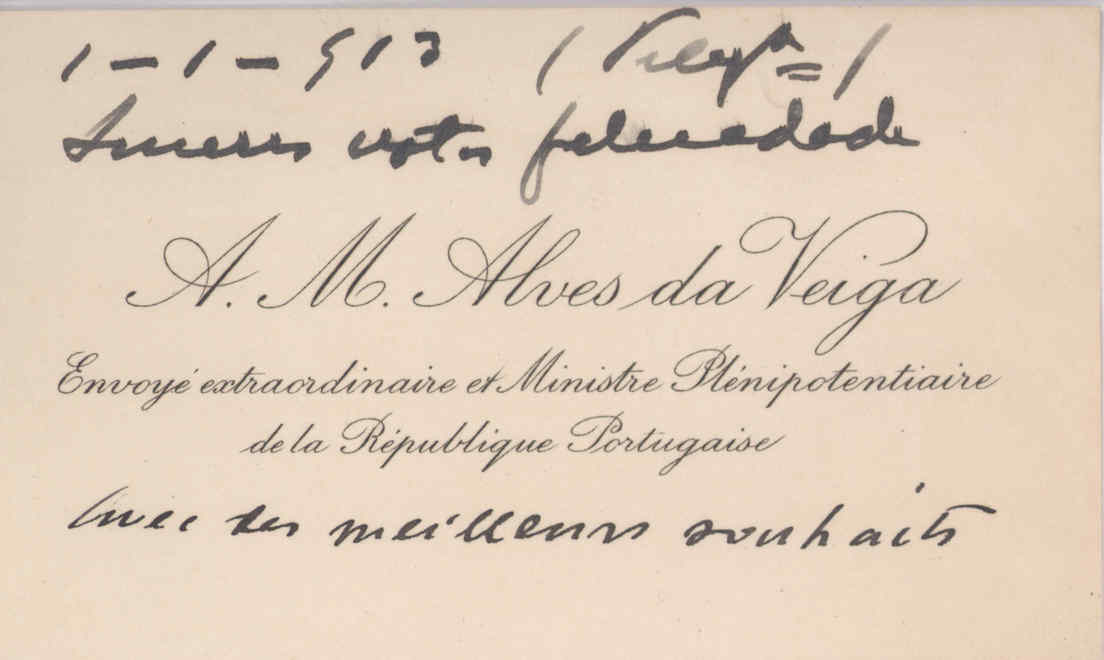 1-1-913 (Telegr.)
Sinceros votos felicidade
A. M. Alves da Veiga
Envoyé extraordinaire et Ministre Plénipotentiaire
de la République Portugaise
Avec ses meilleurs souhaits